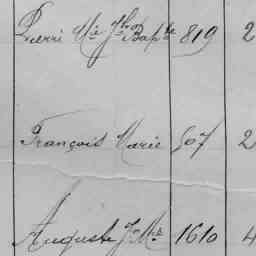 Pierre Mie Jh Bapte 819 2
François Marie 507 2
Auguste J. Me 1610 4